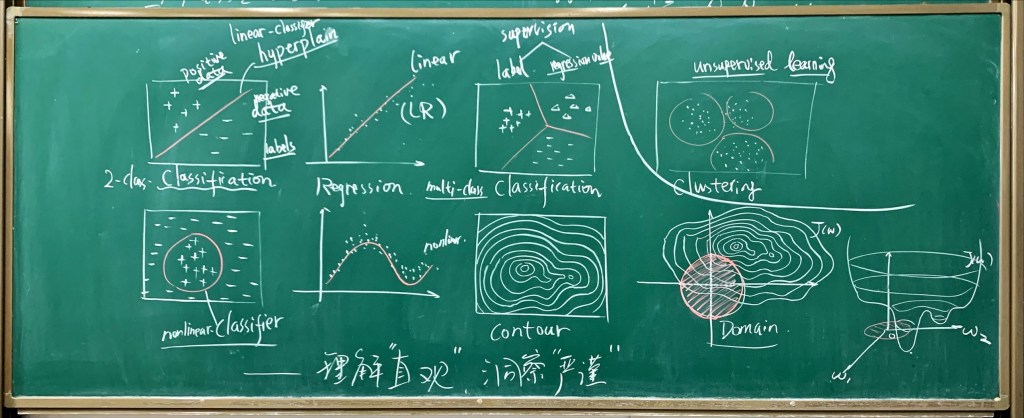 linear-classifier
hyperplain
positive
data
negative
data
labels
2-class Classification
linear
(LR)
Regression
supervision
label
regression value
multi-class Classification
unsupervised learning
Clustering
nonlinear-classifier
nonlinear
Contour
J(w)
Domain
J(w)
ω₂
ω₁
——理解"直观",洞察"严谨"